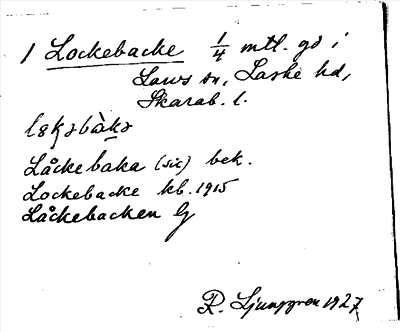 1 Lockebacke 1/4 mtl. gd i
Laws sn, Laske hd,
Skarab. l.
Låckebaka (sic) bek.
Lockebacke kb. 1915
Låckebacken
R. Ljunggren 1927